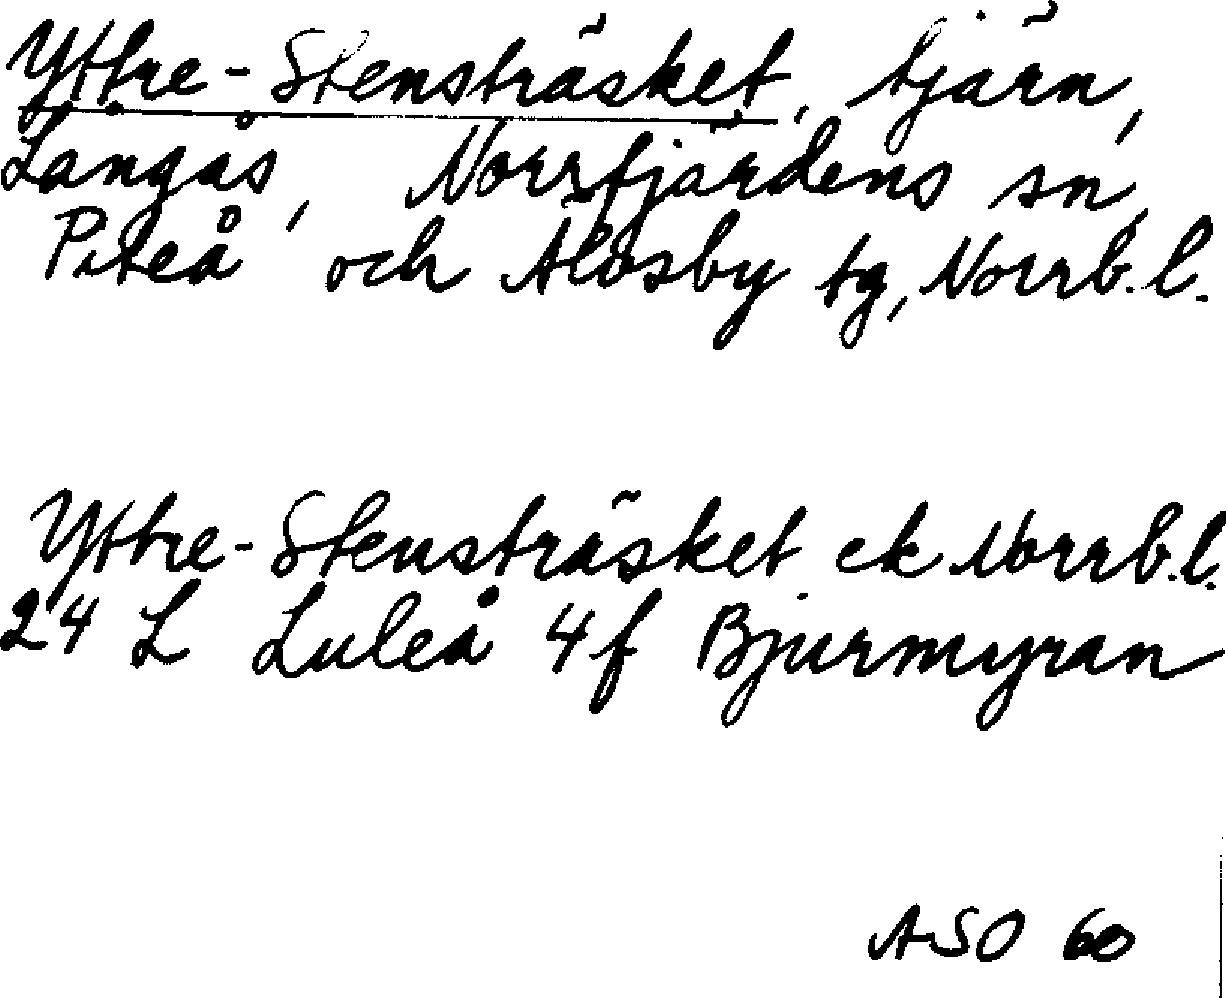 Yttre-Stensträsket, tjärn,
Långås, Norrfjärdens sn,
Piteå och Älvsby tg, Norrb.l.
Yttre-Stensträsket ek Norrb.l.
24 L Luleå 4f Bjurmyran
ASO 60